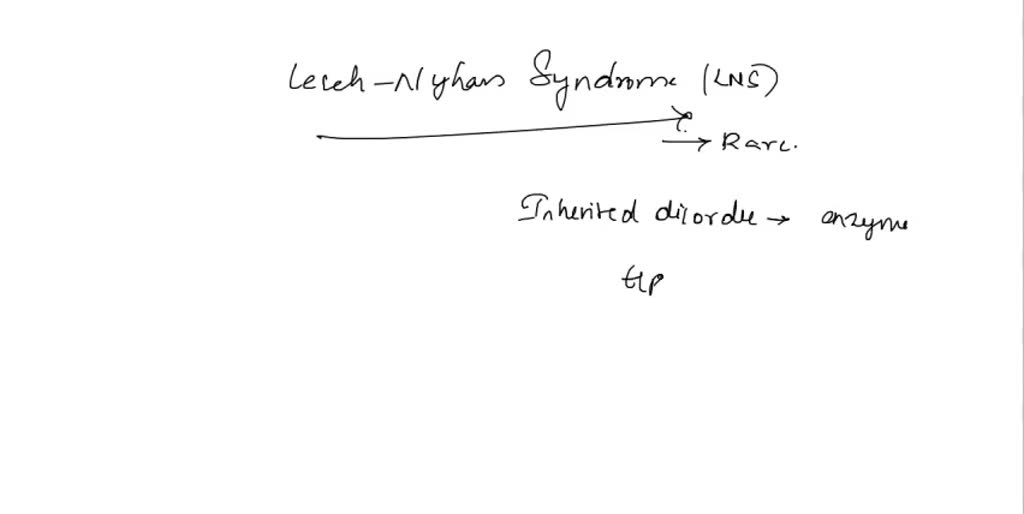 Lesch-Nyhans Syndrome (LNS)
→ Rare.
Inherited disorde → enzyme
HP